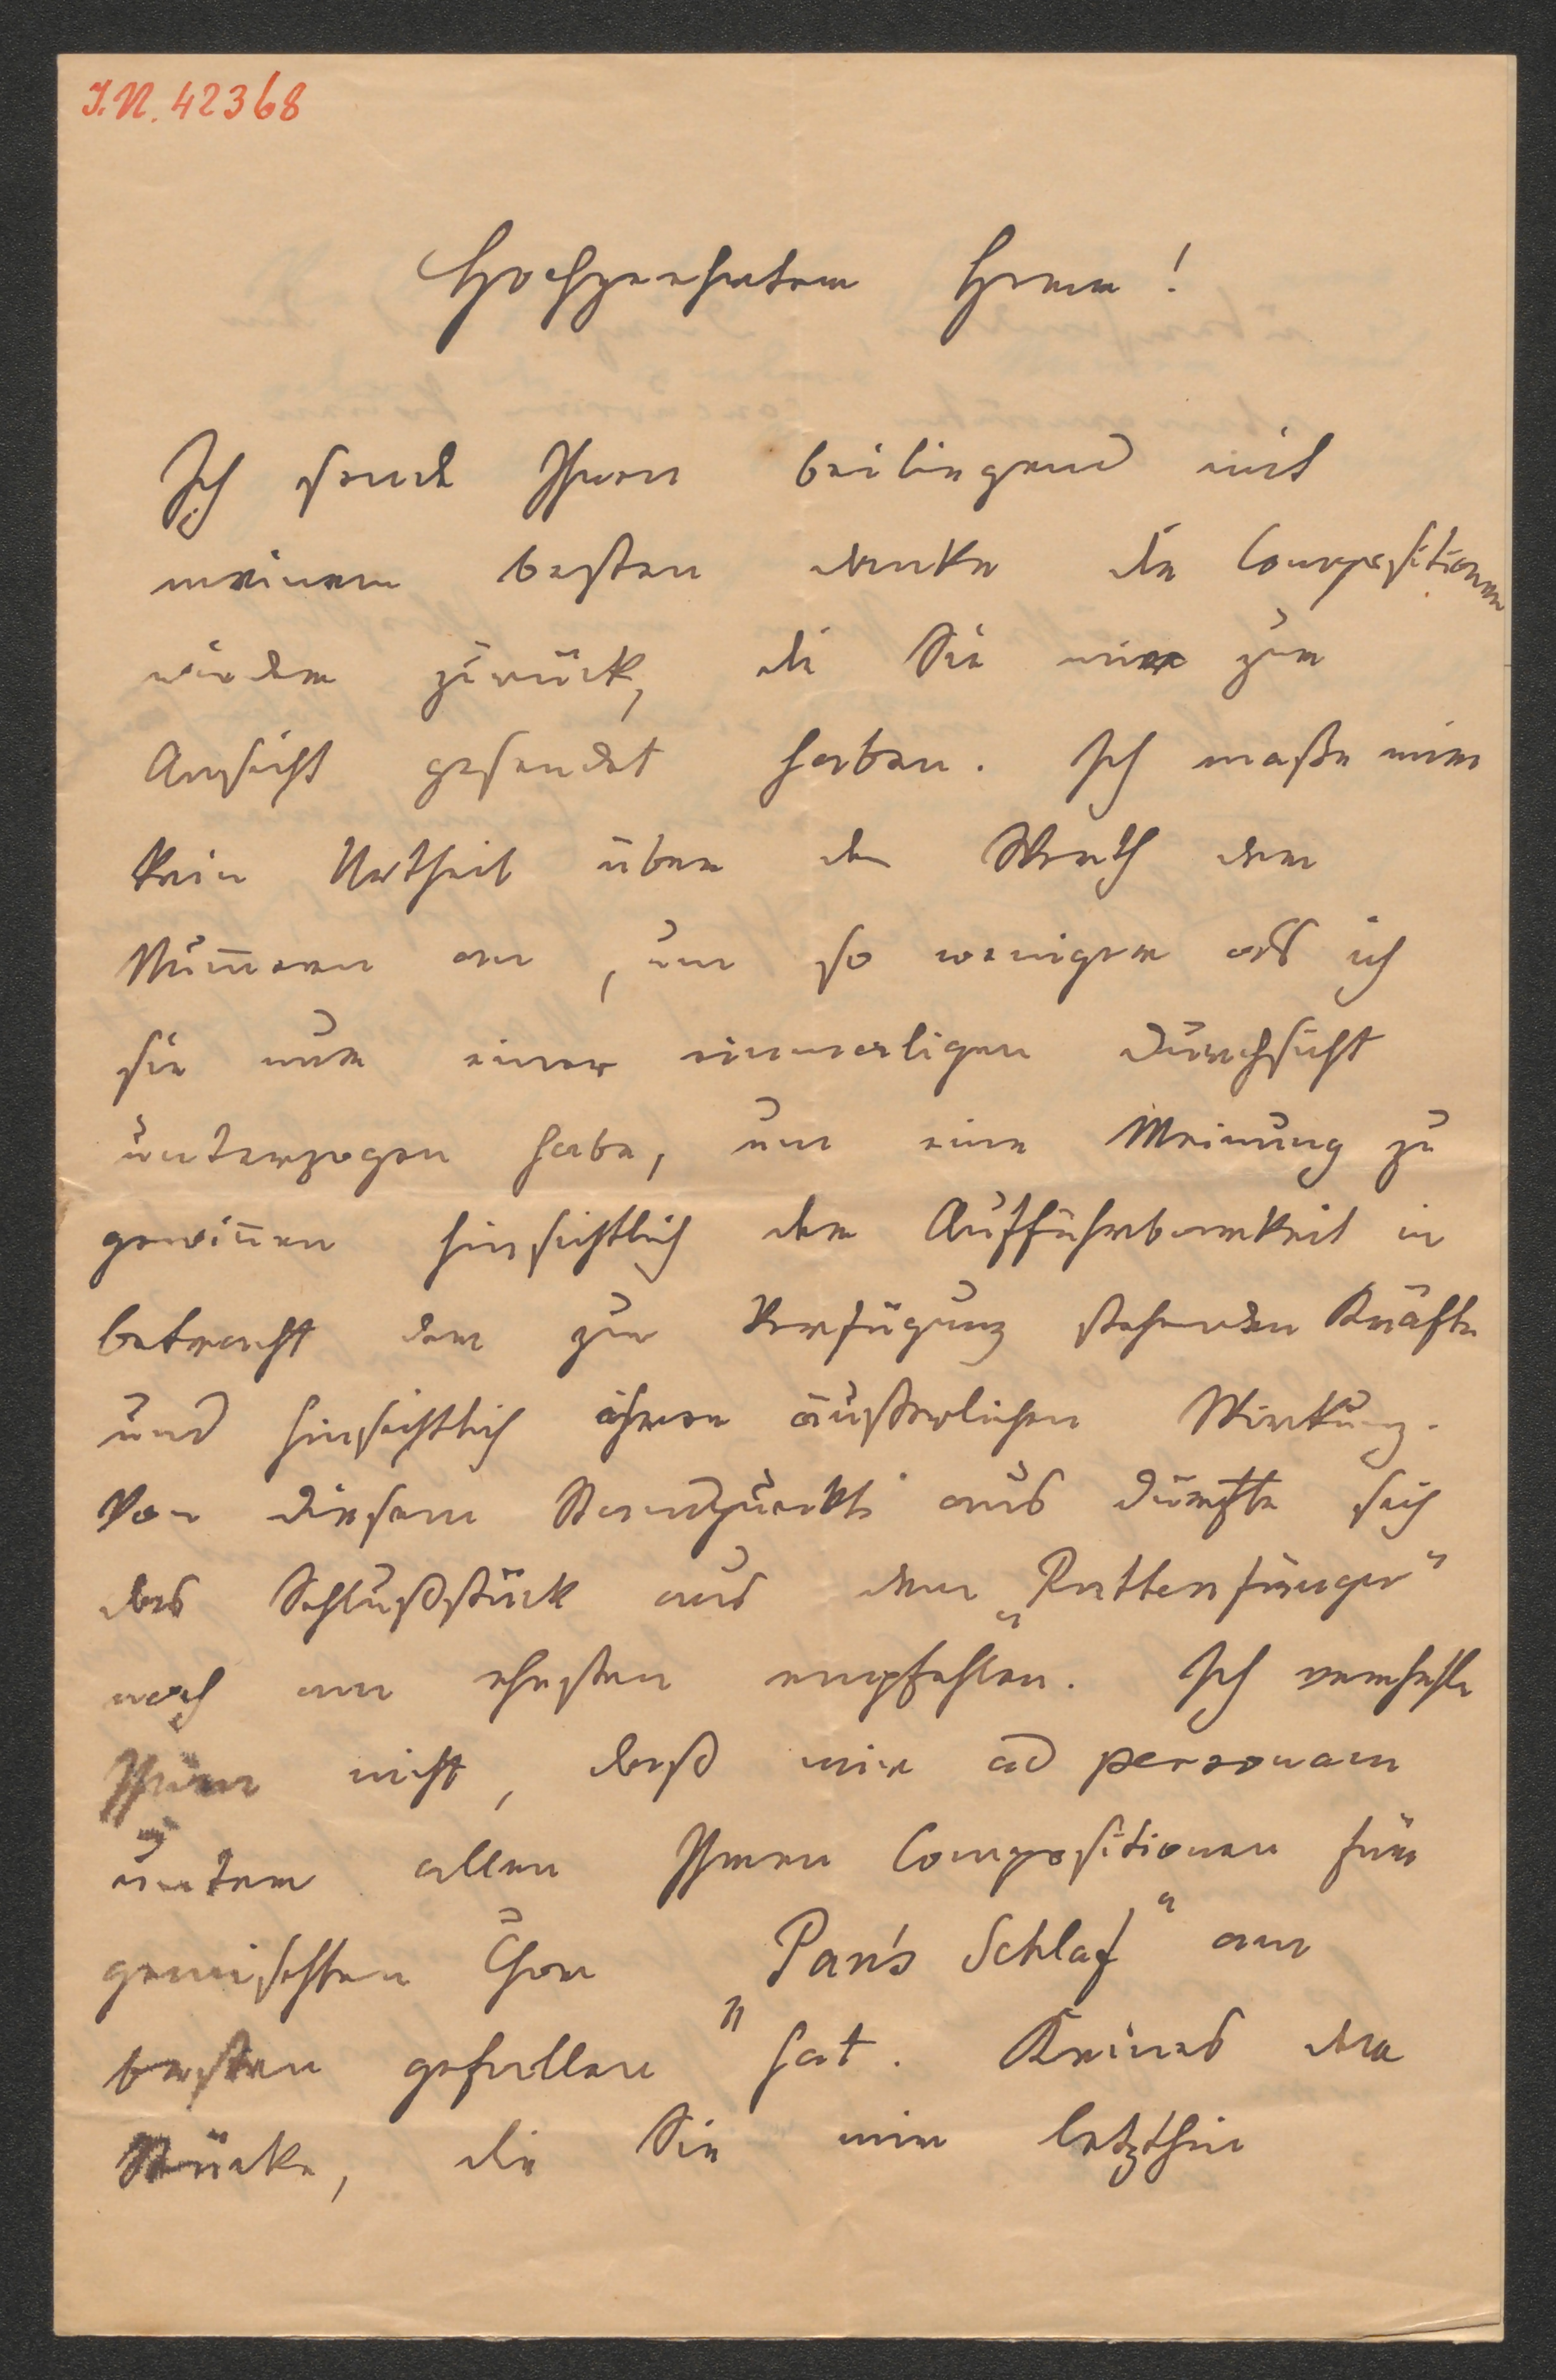 I.N. 42368
Hochgeehrter Herr!
Ich sende Ihnen beiliegend mit
meinem besten Danke die Compositionen
wieder zurück, die Sie mir zur
Ansicht gesendet haben. Ich maße mir
kein Urtheil über den Werth der
Num̄ern an, um so weniger als ich
sie nur einer einmaligen Durchsicht
unterzogen habe, um eine Meinung zu
gewin̄en hinsichtlich der Aufführbarkeit in
betracht der zur Verfügung stehenden Kräfte
und hinsichtlich ihrer äußerlichen Wirkung.
Von diesem Standpunkte aus dürfte sich
das Schlußstück aus dem „Rattenfänger“
noch am ehesten empfehlen. Ich verhehle
Ihnen nicht, daß mir ad personam
unter allen Ihren Compositionen für
gemischten Chor „Pan's Schlaf“ am
besten gefallen hat. Keines der
Stücke, die Sie mir letzthin